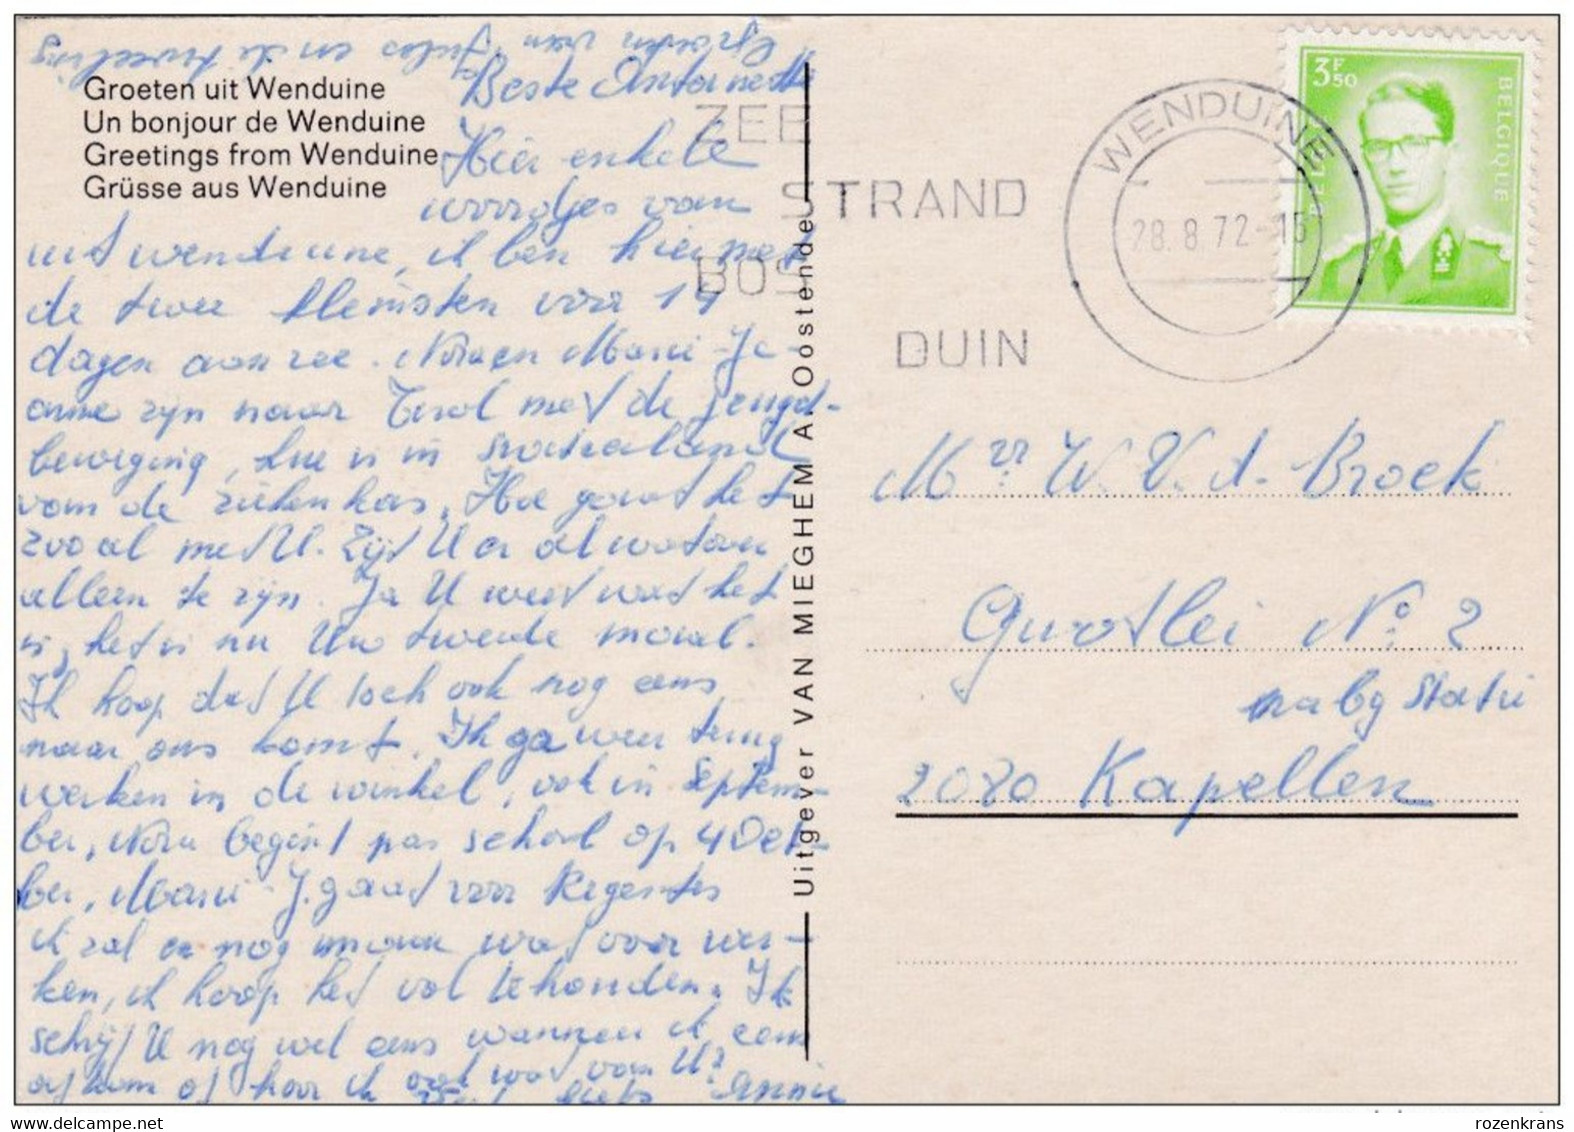 Groeten van Jules en de tweeling
Groeten uit Wenduine
Un bonjour de Wenduine
Greetings from Wenduine
Grüsse aus Wenduine
Beste Antoinette
Hier enkele
woordjes van
uit wenduine, ik ben hier met
de twee kleinsten voor 14
dagen aan zee. Nora en Marie-Je-
anne zijn naar Tirol met de jeugd-
beweging, Lue is in
van de ziekenkas. Hoe gaat het
zoal met U. Zijt U er al wat aan
alleen te zijn. Ja U weet wat het
is, het is nu Uw tweede maal.
Ik hoop dat U toch ook nog eens
naar ons komt. Ik ga weer terug
werken in de winkel, ook in Septem-
ber, Nora begint pas school op 4 Octo-
ber, Marie-J. gaat voor Regentes
ik zal er nog moeten wat voor wer-
ken, ik hoop het vol te houden. Ik
schrijf U nog wel eens wanneer ik eens
afkom of hoor ik ook wat van U?
liefs Annie
Uitgever VAN MIEGHEM A. Oostende
ZEE
STRAND
BOS
DUIN
WENDUINE
28.8.72-15
3F50
BELGIQUE
BELGIE
Mvr W. V. d. Broek
Grootlei No. 2
nabij statie
2080 Kapellen
rozenkrans